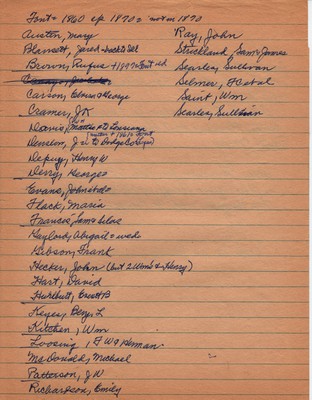 Font + 1860 cf. 1870 = not in 1870
Austin, Mary
Barnett, Jared
Brown, Rufus
Carson, Edwin & George
Cramer, J
Davis,
Denslow, J
Depuy, Henry W
Derry, George
Evans, John
Flack, Maria
Frances, Sam & Silas
Gaylord, Abigail = wid
Gibson, Frank
Hecker, John (but 2 Wm's & Henry)
Hart, David
Hurlbutt, Everett B
Keyes, Benj. L
Kitchen, Wm
Loosing, F W & Herman
McDonald, Michael
Patterson, J W
Richardson, Emily
Ray, John
Strickland Sam & James
Searles, Sullivan
Selmer, F et al
Saint, Wm
Searles, Sullivan